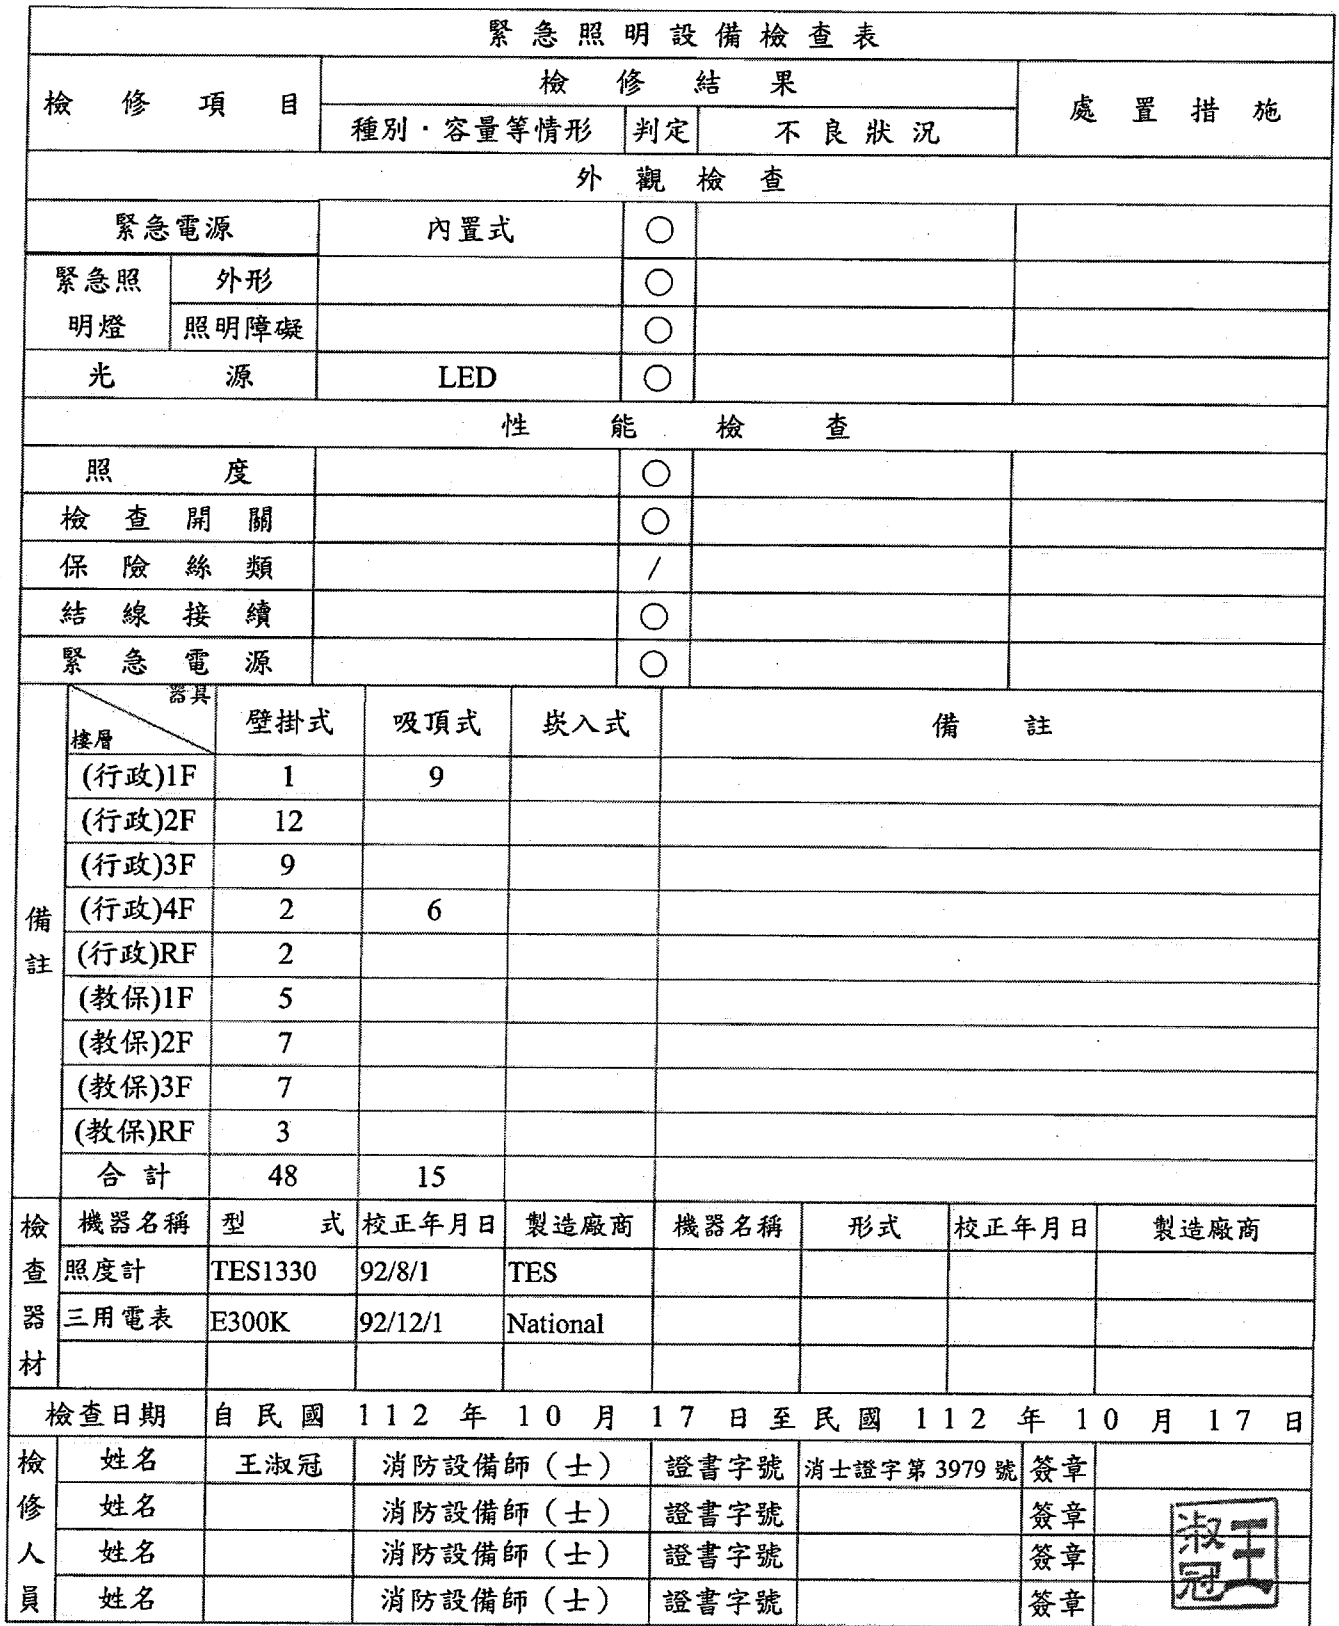 緊急照明設備檢查表
檢修項目 檢修結果 處置措施
種別・容量等情形 判定 不良狀況
外觀檢查
緊急電源 內置式 ○
緊急照明燈 外形 ○
照明障礙 ○
光源 LED ○
性能檢查
照度 ○
檢查開關 ○
保險絲類 /
結線接續 ○
緊急電源 ○
備註 器具 樓層 壁掛式 吸頂式 崁入式 備註
(行政)1F 1 9
(行政)2F 12
(行政)3F 9
(行政)4F 2 6
(行政)RF 2
(教保)1F 5
(教保)2F 7
(教保)3F 7
(教保)RF 3
合計 48 15
檢查器材 機器名稱 型式 校正年月日 製造廠商 機器名稱 形式 校正年月日 製造廠商
照度計 TES1330 92/8/1 TES
三用電表 E300K 92/12/1 National
檢查日期 自民國112年10月17日至民國112年10月17日
檢修人員 姓名 王淑冠 消防設備師（士） 證書字號 消士證字第 3979 號 簽章
姓名 消防設備師（士） 證書字號 簽章
姓名 消防設備師（士） 證書字號 簽章
姓名 消防設備師（士） 證書字號 簽章
王淑冠